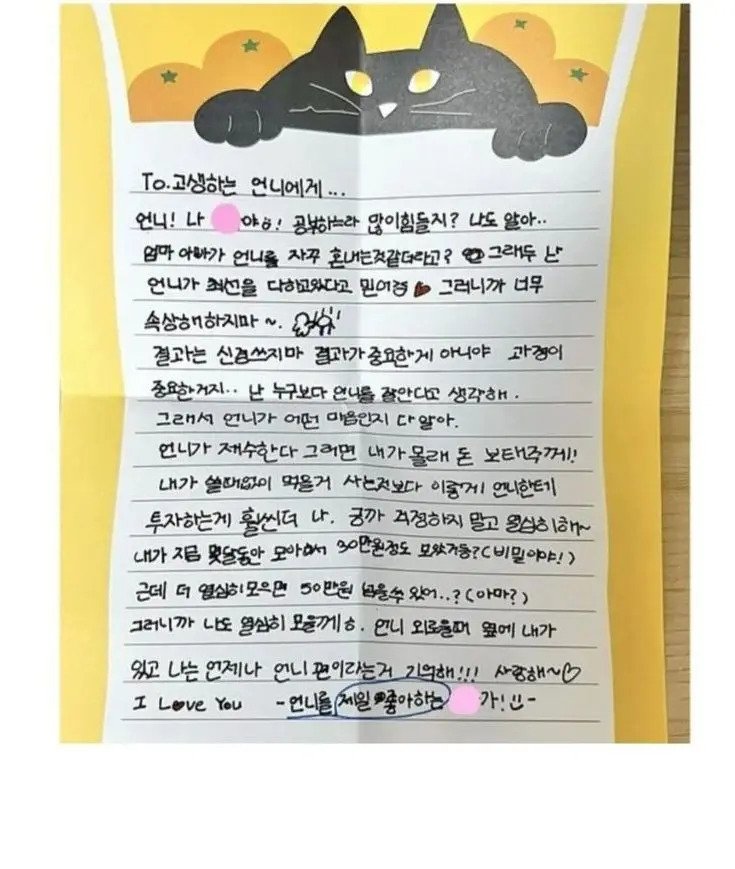 To.고생하는 언니에게...
언니! 나 야ㅎ! 공부하느라 많이힘들지? 나도 알아..
엄마 아빠가 언니를 자꾸 혼내는것같더라고? 그래두 난
언니가 최선을 다하고있다고 믿어영 그러니까 너무
속상해하지마~.
결과는 신경쓰지마 결과가중요한게 아니야 과정이
중요한거지.. 난 누구보다 언니를 잘안다고 생각해.
그래서 언니가 어떤 마음인지 다 알아.
언니가 재수한다 그러면 내가몰래 돈 보태주께!!
내가 쓸때없이 먹을거 사는것보다 이렇게 언니한테
투자하는게 훨씬더 나. 긍까 걱정하지 말고 열심히해~
내가 지금 몇달동안 모아서 30만원정도 모았거등?(비밀이야!)
근데 더 열심히모으면 50만원 넘을수 있어..?(아마?)
그러니까 나도 열심히 모을께ㅎ. 언니 외로울때 옆에 내가
있고 나는 언제나 언니 편이라는거 기억해!!! 사랑해~♡
I Love You -언니를 제일 좋아하는 가!!-